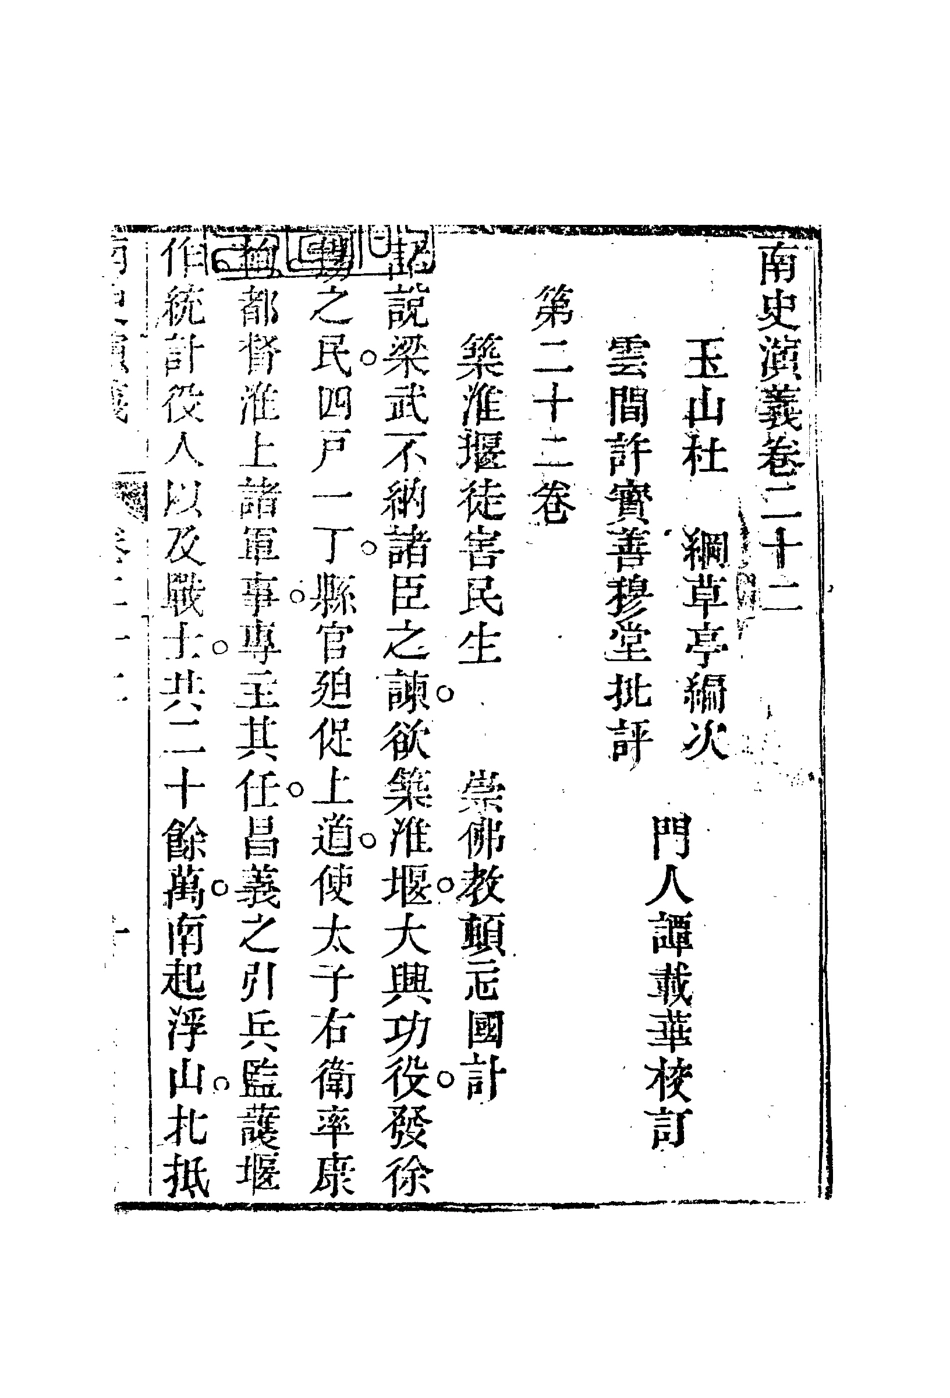 南史演義卷二十二
玉山杜　綱草亭編次
門人譚載華校訂
雲間許寶善穆堂批評
第二十二卷
築淮堰徒害民生　崇佛教頓忘國計
話說梁武不納諸臣之諫欲築淮堰大興功役發徐
揚之民四戶一丁縣官廹促上道使太子右衛率康
絢都督淮上諸軍事專主其任昌義之引兵監護堰
作統計役人以及戰士共二十餘萬南起浮山北抵
南史演義　卷二十二　一